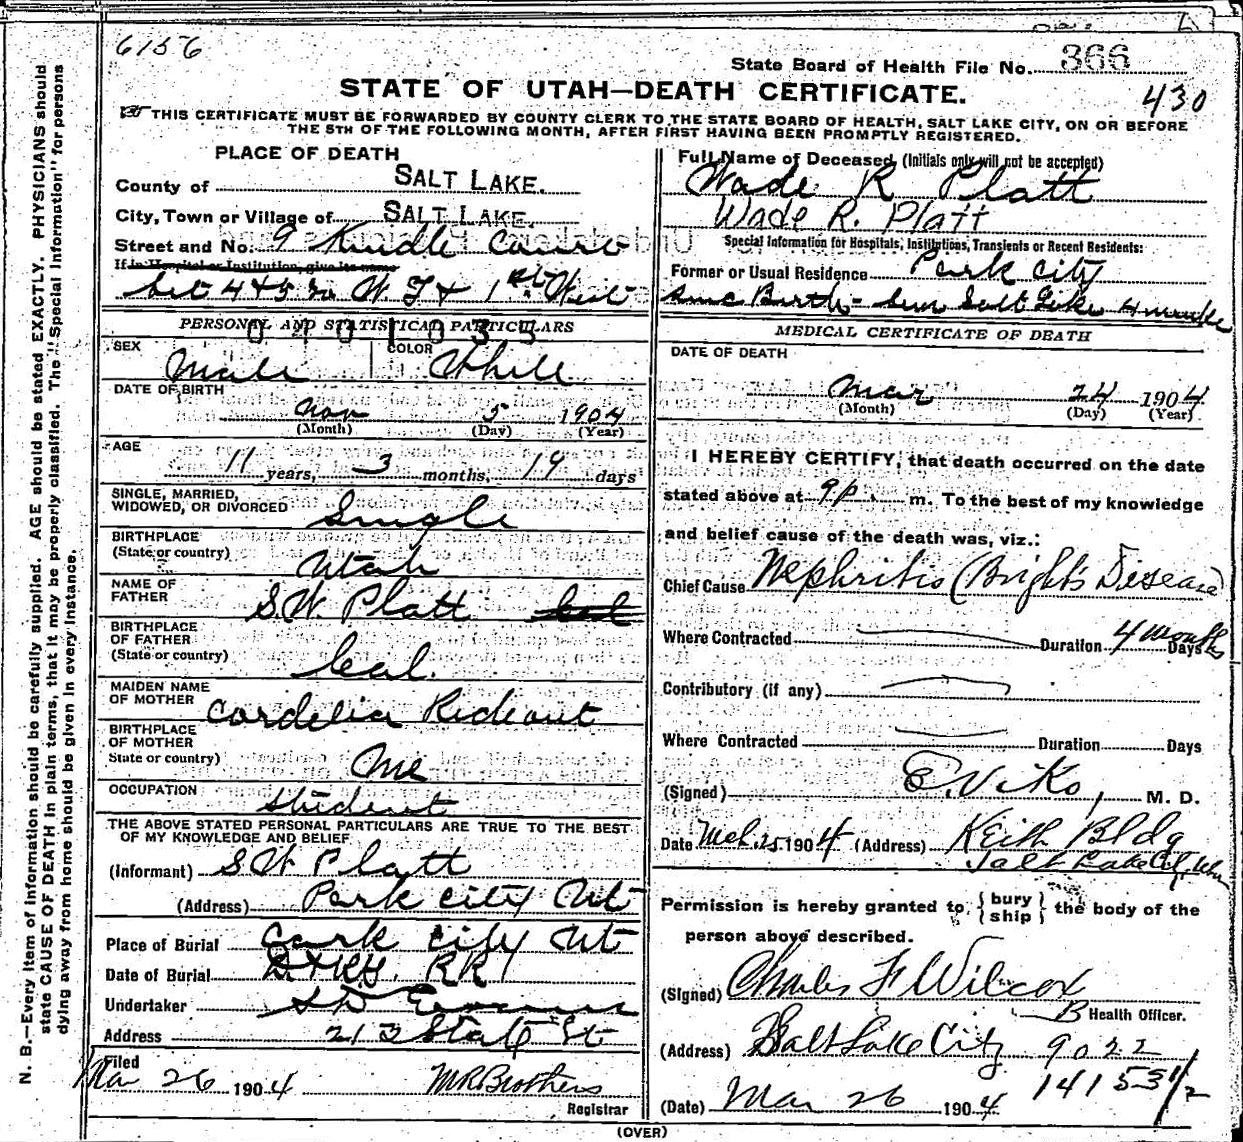 6156
State Board of Health File No. 366
STATE OF UTAH—DEATH CERTIFICATE.
430
THIS CERTIFICATE MUST BE FORWARDED BY COUNTY CLERK TO THE STATE BOARD OF HEALTH, SALT LAKE CITY, ON OR BEFORE
THE 5TH OF THE FOLLOWING MONTH, AFTER FIRST HAVING BEEN PROMPTLY REGISTERED.
PLACE OF DEATH
County of SALT LAKE.
City, Town or Village of SALT LAKE.
Street and No. 9 Kindle
If in Hospital or Institution, give its name
bet 4 & 5 So W T & 1st West
PERSONAL AND STATISTICAL PARTICULARS
0401035
SEX Male COLOR White
DATE OF BIRTH
Nov 5 1904
(Month) (Day) (Year)
AGE
11 years, 3 months, 19 days
SINGLE, MARRIED,
WIDOWED, OR DIVORCED Single
BIRTHPLACE
(State or country) Utah
NAME OF
FATHER S.W. Platt
BIRTHPLACE
OF FATHER
(State or country) Cal.
MAIDEN NAME
OF MOTHER Cordelia Rideout
BIRTHPLACE
OF MOTHER
State or country) Me
OCCUPATION Student
THE ABOVE STATED PERSONAL PARTICULARS ARE TRUE TO THE BEST
OF MY KNOWLEDGE AND BELIEF
(Informant) S W Platt
(Address) Park City Ut
Place of Burial Park City Ut
Date of Burial RR
Undertaker S D Evans
Address 213 State St
Filed
Mar 26 1904 M R Brothers
Registrar
Full Name of Deceased, (Initials only will not be accepted)
Wade R Platt
Wade R. Platt
Special Information for Hospitals, Institutions, Transients or Recent Residents:
Former or Usual Residence Park City
Since Birth - Salt Lake 4 months
MEDICAL CERTIFICATE OF DEATH
DATE OF DEATH
Mar 24 1904
(Month) (Day) (Year)
I HEREBY CERTIFY, that death occurred on the date
stated above at 9 p. m. To the best of my knowledge
and belief cause of the death was, viz.:
Chief Cause Nephritis (Bright's Disease)
Where Contracted Duration 4 months Days
Contributory (if any)
Where Contracted Duration Days
(Signed) E. Viko, M. D.
Date Mch. 25 1904 (Address) Keith Bldg
Salt Lake City, Utah
Permission is hereby granted to { bury
ship } the body of the
person above described.
(Signed) Charles F Wilcox
B Health Officer.
(Address) Salt Lake City 9022
14153 1/2
(Date) Mar 26 1904
(OVER)
N. B.—Every item of information should be carefully supplied. AGE should be stated EXACTLY. PHYSICIANS should
state CAUSE OF DEATH in plain terms, that it may be properly classified. The "Special Information" for persons
dying away from home should be given in every instance.